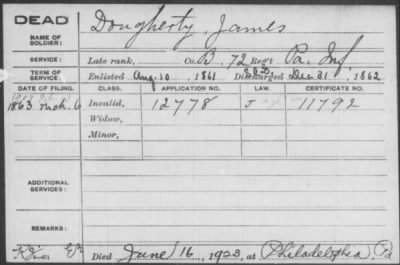 DEAD
NAME OF SOLDIER: Dougherty, James
SERVICE: Late rank, Co. B, 72 Reg't Pa. Inf
TERM OF SERVICE: Enlisted Aug. 10, 1861 Discharged Dec. 31, 1862
DATE OF FILING. CLASS. APPLICATION NO. LAW. CERTIFICATE NO.
1863 Mch. 6 Invalid, 12778 J 11792
Widow,
Minor,
ADDITIONAL SERVICES:
REMARKS:
Died June 16, 1923, at Philadelphia, Pa